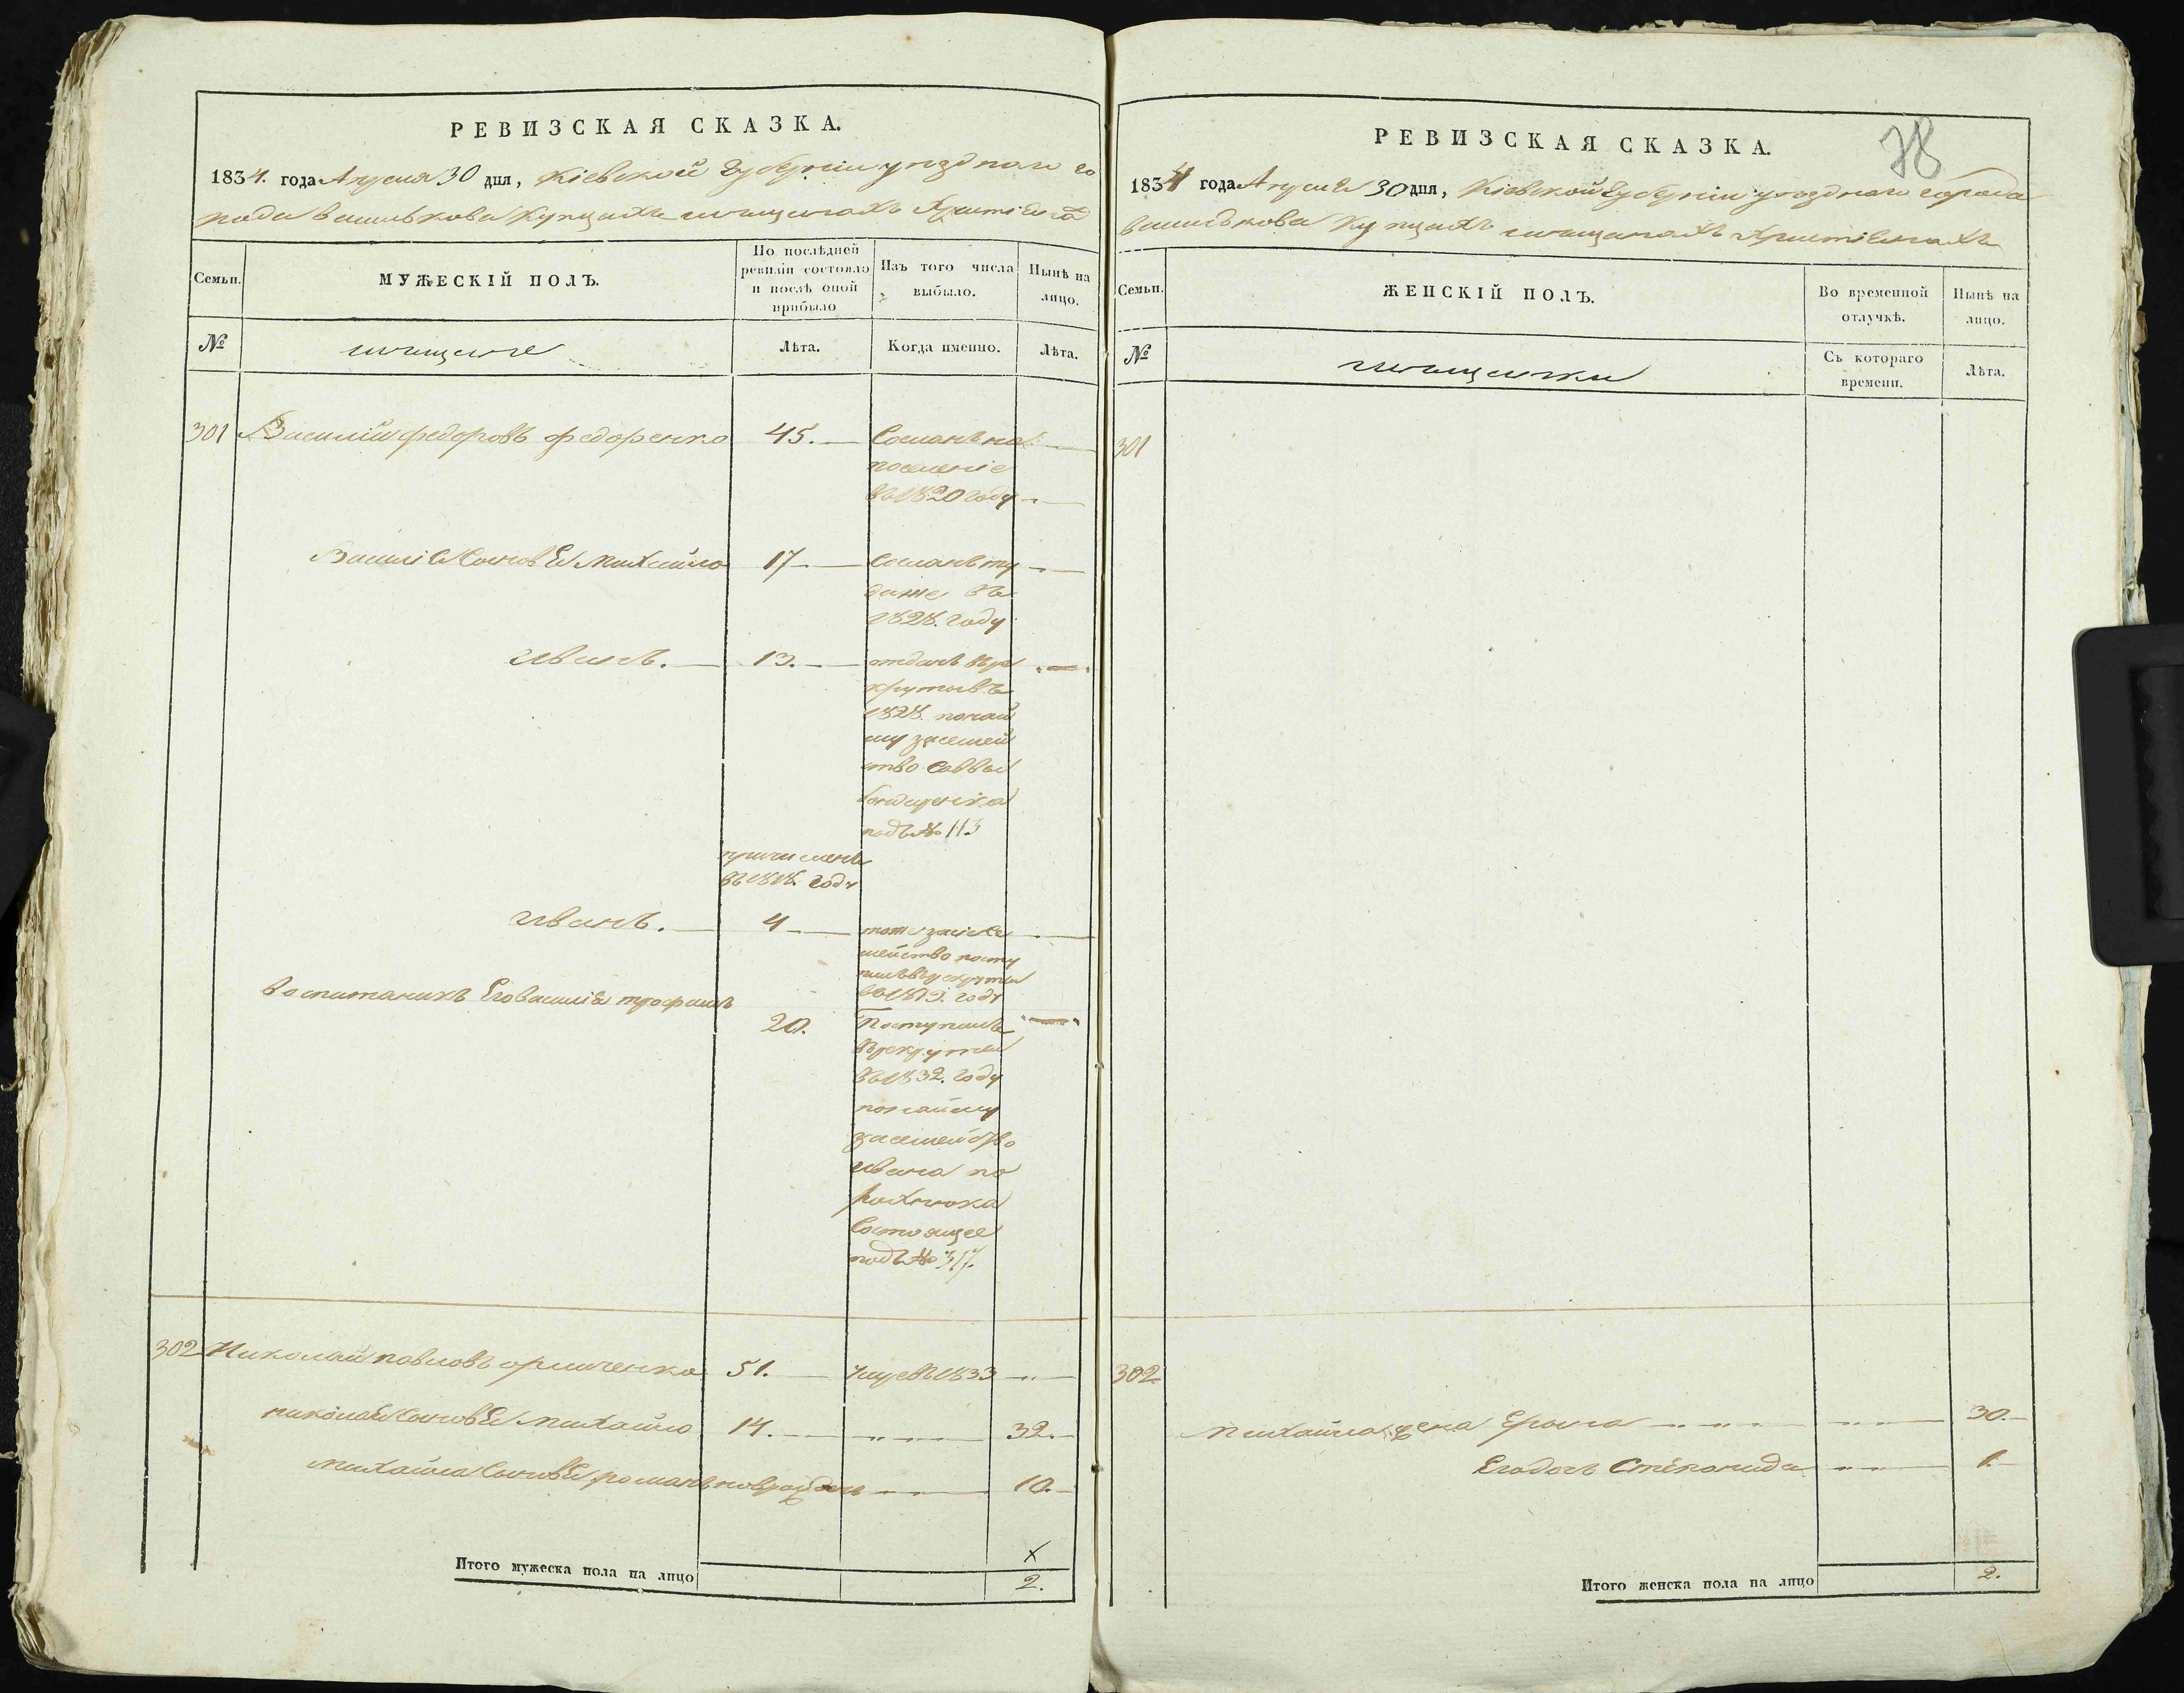 РЕВИЗСКАЯ СКАЗКА.
1834. года Апреля 30 дня, Кіевской Губерніи уезднаго го
рода Василькова Купцахъ мещанахъ
Семьи.
МУЖЕСКІЙ ПОЛЪ.
По послѣдней ревизіи состояло и послѣ оной прибыло
Изъ того числа выбыло.
Нынѣ на лицо.
№
мещане
Лѣта.
Когда именно.
Лѣта.
301 Василий Федоровъ Федоренко 45. Сосланъ на
поселеніе
въ 1820 году
Василія Сыновья Михайло 17 Сосланъ ту
даже въ
1828. году
Иванъ. 13. отданъ въ ре
круты въ
1828. по най
му за семей
ство Саввы
подъ № 113
причисленъ
въ 1818. году
Иванъ. 4 тоже за се
мейство посту
въ рекруты
году
воспитаникъ Его Василія Трофимъ
20. Поступилъ
въ рекруты
въ 1832. году
по найму
за семейство
Ивана по
рохнюка
Состоящее
подъ № 317.
302 Николай Павловъ 51. Умре въ 1833
Николая Сыновья Михайло 14. 32.
Михайла Сыновья романъ новорожденъ 10.
Итого мужеска пола на лицо
2.
РЕВИЗСКАЯ СКАЗКА.
78
1834 года Апреля 30 дня, Кіевской Губерніи уезднаго города
Василькова Купцахъ мещанахъ
Семьи.
ЖЕНСКІЙ ПОЛЪ.
Во временной отлучкѣ.
Нынѣ на лицо.
№
мещанки
Съ котораго времени.
Лѣта.
301
302
Михайла жена 30.
Его дочь Степонида 1.
Итого женска пола на лицо 2.